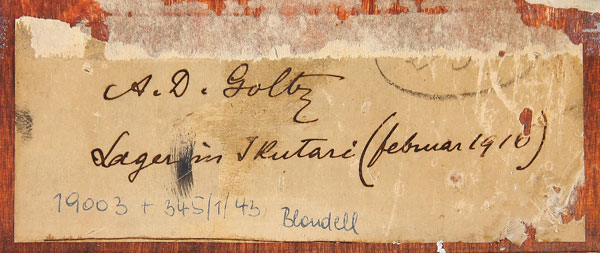 A. D. Goltz
Lager in Ikutari (februar 1910)
19003 + 345/1/43 Blondell